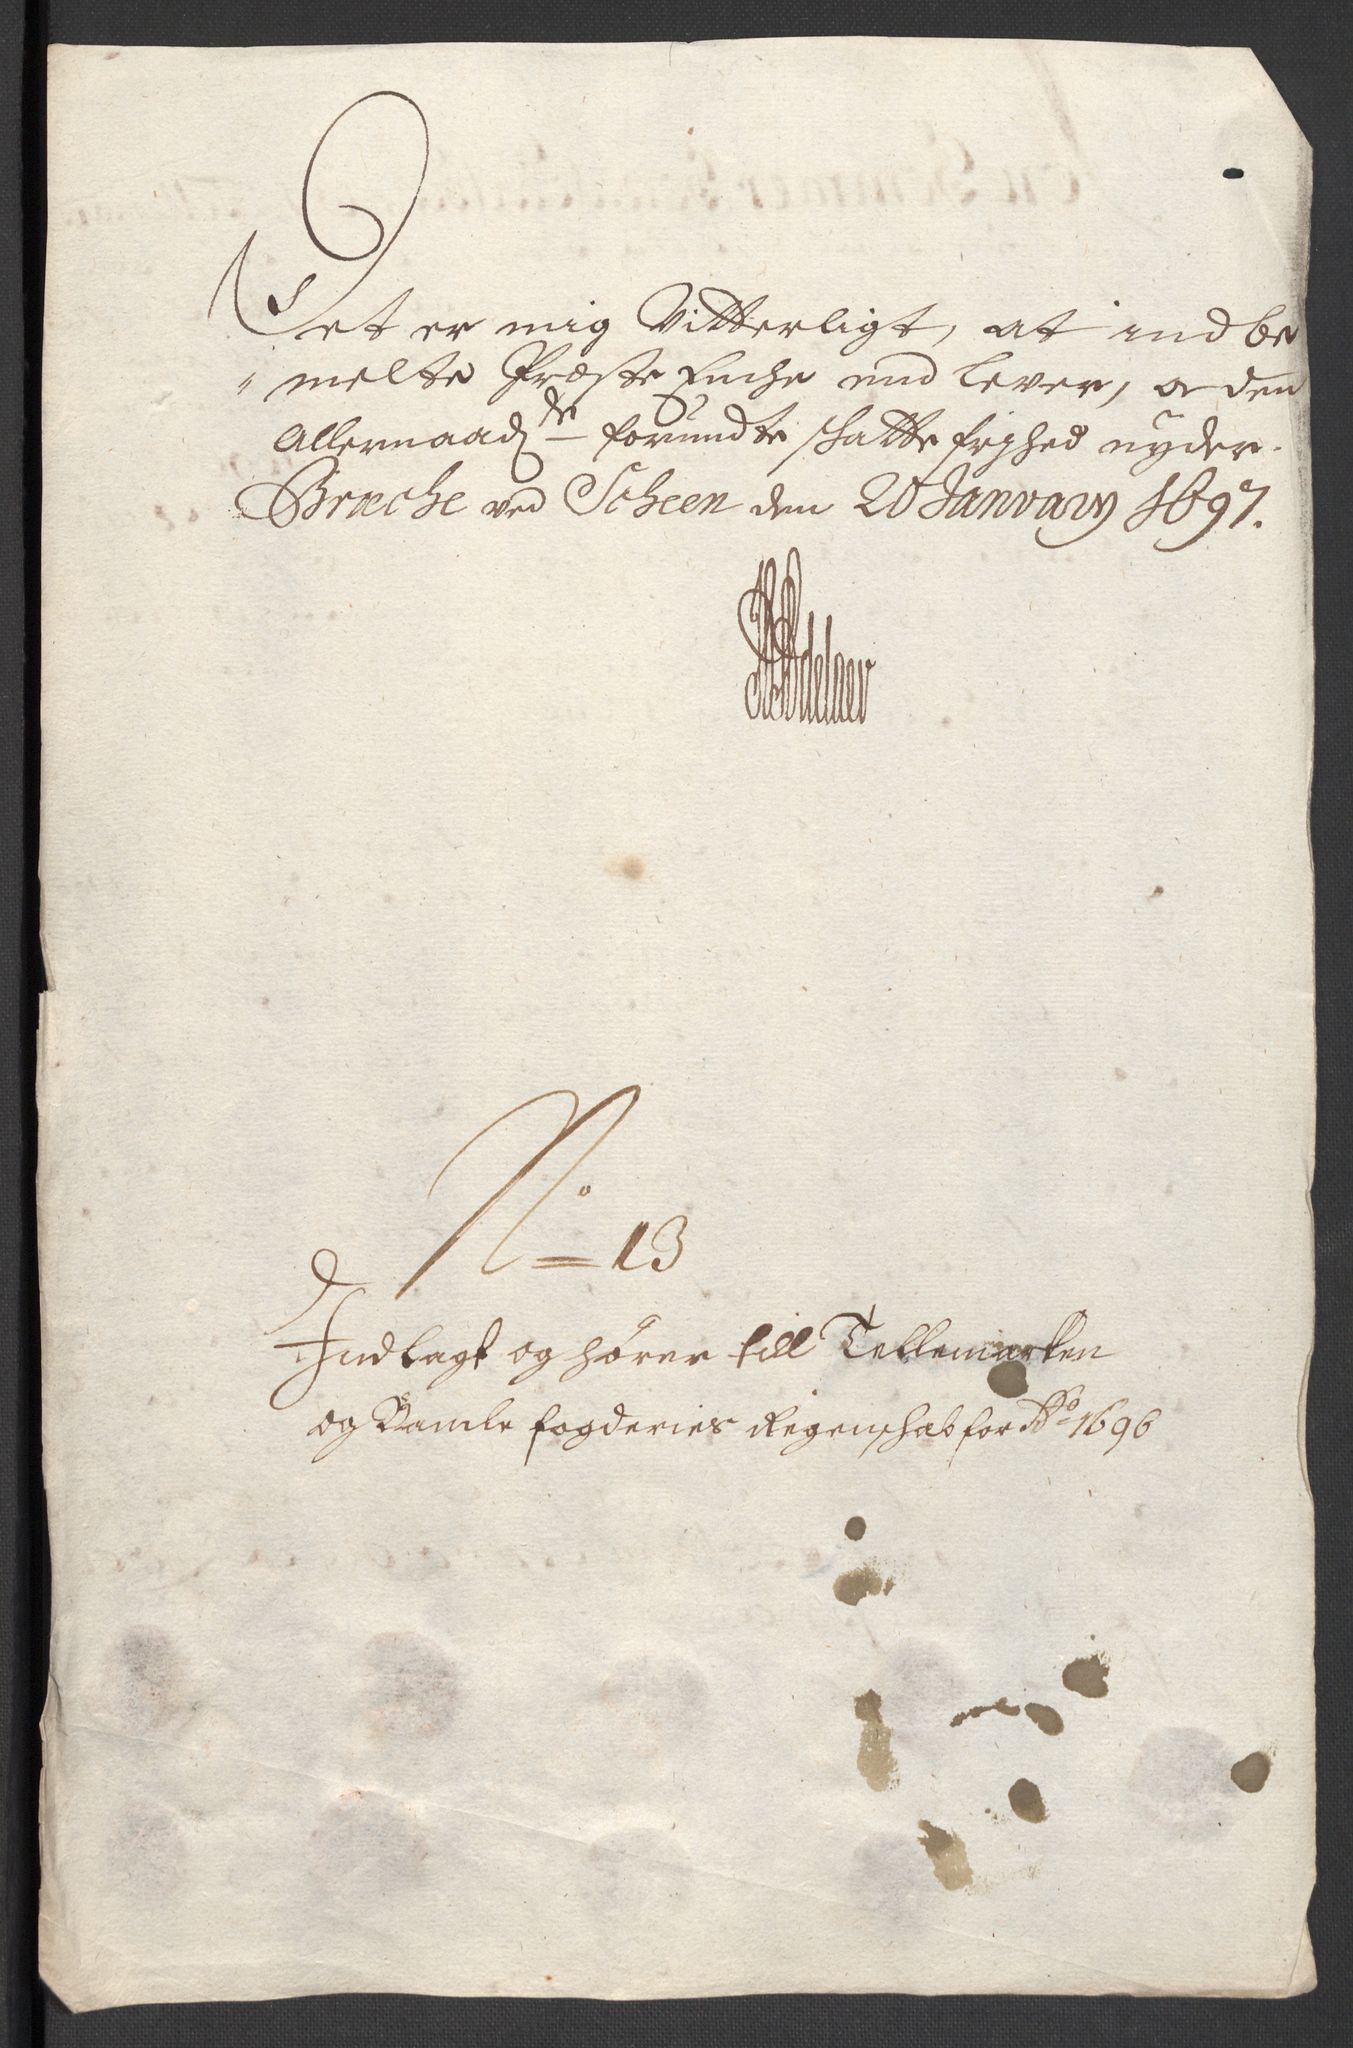 Det er mig Vitterligt, at ind be
melte Præste Enche end lever, oc den
Allernaad de forundte skatte frihed nyder.
Bratche ved Scheen den 20 January 1697.
Adelaer
No 13
Indlagt og hører till Tellemarken
og Bamle fogderies Regenschab for Ao 1696